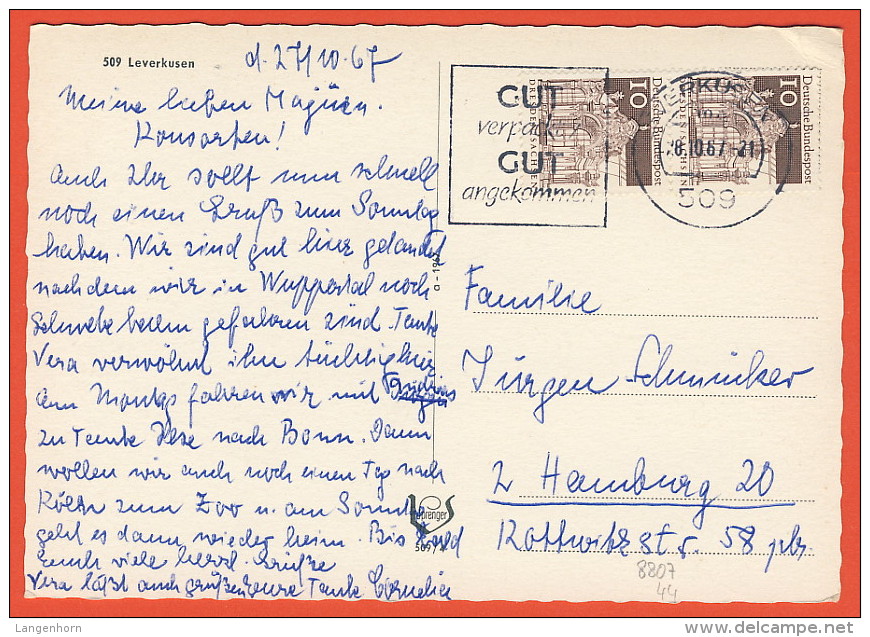 509 Leverkusen
d. 27/10.67
Meine lieben
Konsorten!
Auch Ihr sollt nun schnell
noch einen Gruß zum Sonntag
haben. Wir sind gut hier gelandet
nachdem wir in Wuppertal noch
Schwebebahn gefahren sind. Tante
Vera verwöhnt ihn tüchtig hier
am Montag fahren wir mit
zu Tante Ilse nach Bonn. Dann
wollen wir auch noch einen Tag nach
Köln zum Zoo u. am Sonntag
geht es dann wieder heim. Bis bald
Euch viele herzl. Grüße
Vera läßt auch grüßen Eure Tante Cornelie
GUT
verpackt
GUT
angekommen
10
Deutsche Bundespost
10
Deutsche Bundespost
28.10.67-21
509
Sprenger
509/
Familie
Jürgen Schmücker
2 Hamburg 20
Kottwitzstr. 58 ptr.
8807
44
Langenhorn
www.delcampe.net